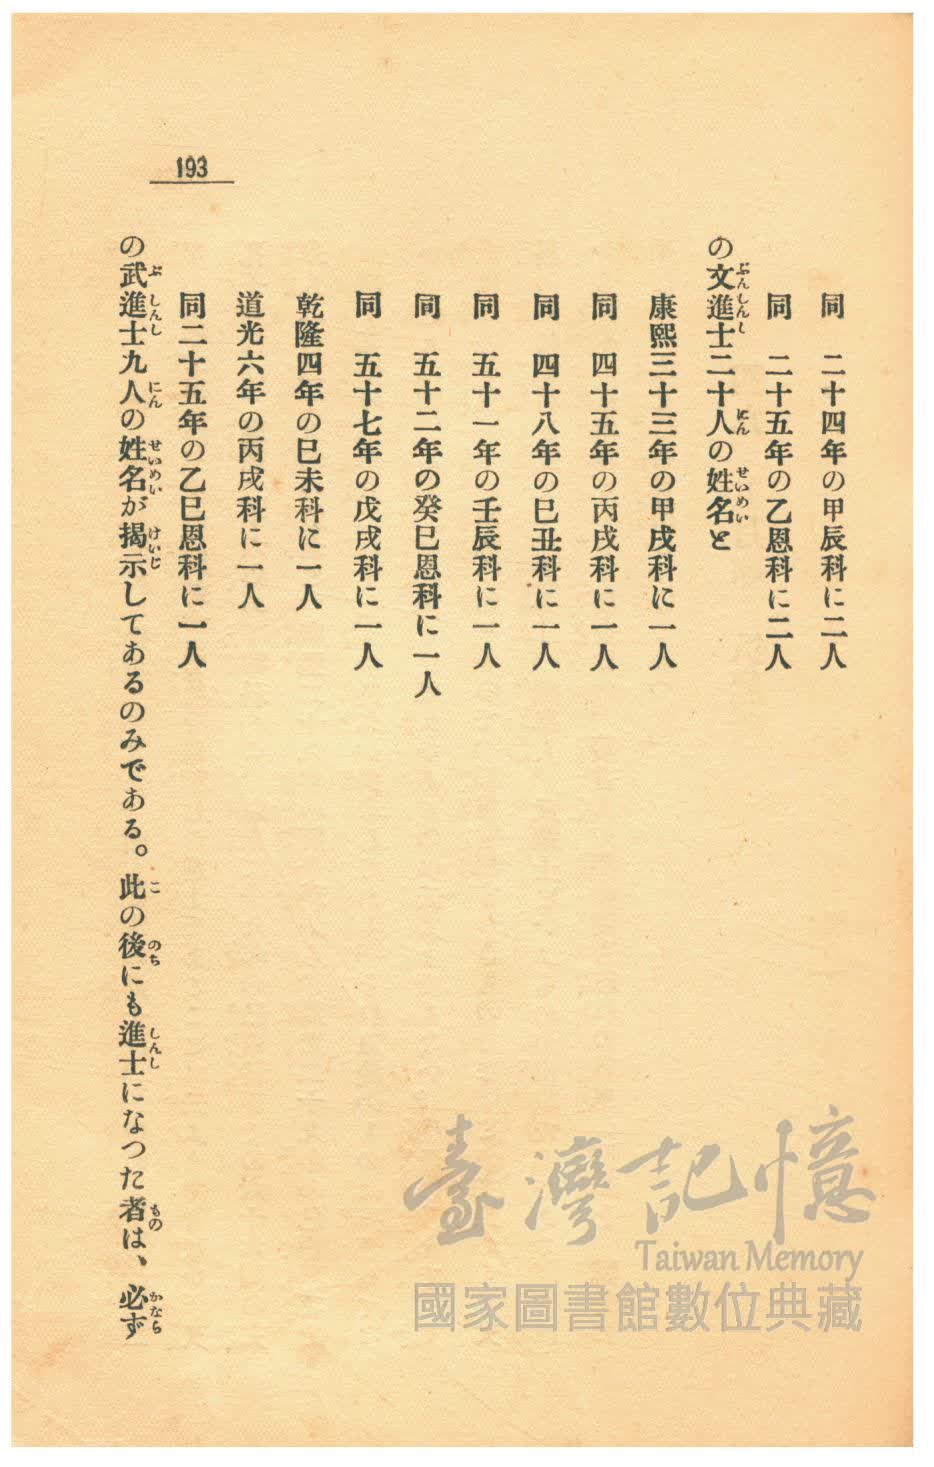 193
同　二十四年の甲辰科に二人
同　二十五年の乙恩科に二人
の文進士二十人の姓名と
康熙三十三年の甲戌科に一人
同　四十五年の丙戌科に一人
同　四十八年の巳丑科に一人
同　五十一年の壬辰科に一人
同　五十二年の癸巳恩科に一人
同　五十七年の戊戌科に一人
乾隆四年の巳未科に一人
道光六年の丙戌科に一人
同二十五年の乙巳恩科に一人
の武進士九人の姓名が揭示してあるのみである。此の後にも進士になつた者は、必ず
臺灣記憶
Taiwan Memory
國家圖書館數位典藏